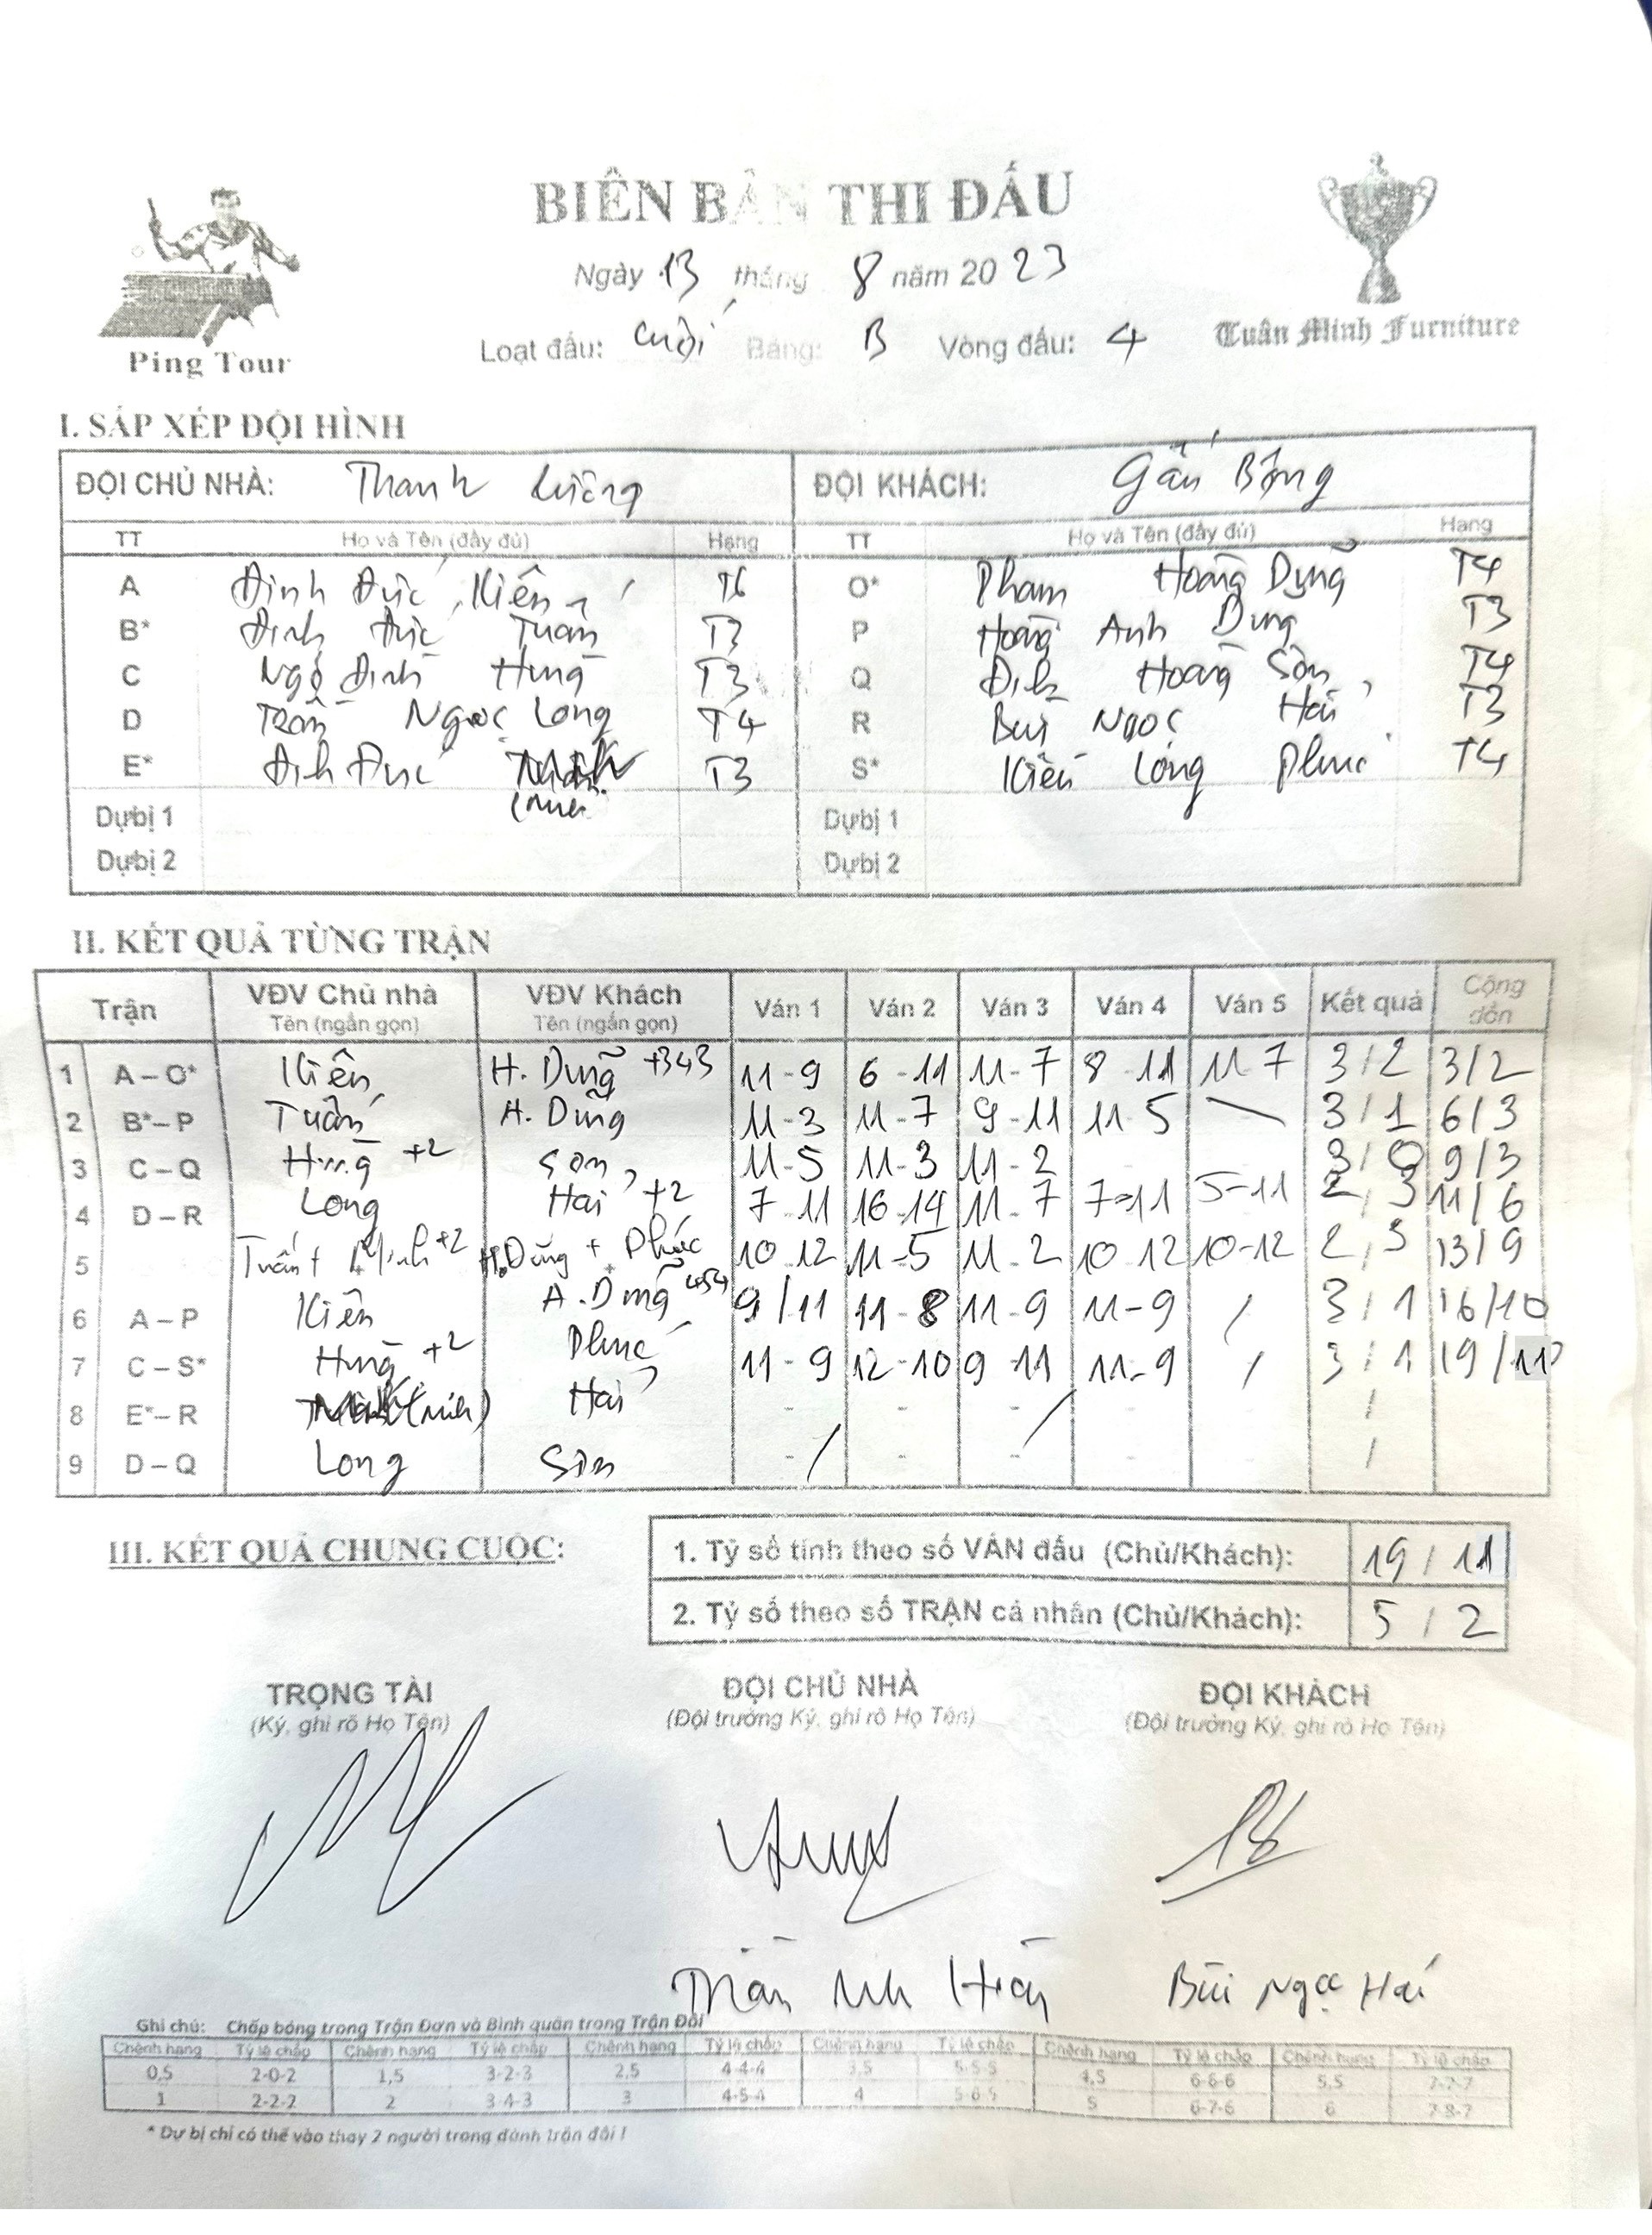 BIÊN BẢN THI ĐẤU
Ngày 13 tháng 8 năm 20 23
Loạt đấu: cuối Bảng: B Vòng đấu: 4
Ping Tour
Tuấn Minh Furniture
I. SẮP XẾP ĐỘI HÌNH
ĐỘI CHỦ NHÀ: Thanh ĐỘI KHÁCH: Gấu Bông
TT Họ và Tên (đầy đủ) Hạng TT Họ và Tên (đầy đủ) Hạng
A Đinh Đức Kiên T6 O* Phạm Hoàng Dũng T4
B* Đinh Đức Tuấn T3 P Hoàng Anh Dũng T3
C Ngô Đình Hưng T3 Q Đinh Hoàng Sơn T4
D Trần Ngọc Long T4 R Bùi Ngọc Hải T3
E* Đinh Đức T3 S* Kiều Long Phúc T4
Dự bị 1 Dự bị 1
Dự bị 2 Dự bị 2
II. KẾT QUẢ TỪNG TRẬN
Trận VĐV Chủ nhà Tên (ngắn gọn) VĐV Khách Tên (ngắn gọn) Ván 1 Ván 2 Ván 3 Ván 4 Ván 5 Kết quả Cộng dồn
1 A – O* Kiên H. Dũng +343 11-9 6-11 11-7 8-11 11-7 3/2 3/2
2 B* – P Tuấn A. Dũng 11-3 11-7 9-11 11-5 3/1 6/3
3 C – Q Hưng +2 Sơn 11-5 11-3 11-2 3/0 9/3
4 D – R Long Hải +2 7-11 16-14 11-7 7-11 5-11 2/3 11/6
5 Tuấn + Minh +2 H.Dũng + Phúc 10-12 11-5 11-2 10-12 10-12 2/3 13/9
6 A – P Kiên A. Dũng 454 9/11 11-8 11-9 11-9 / 3/1 16/10
7 C – S* Hưng +2 Phúc 11-9 12-10 9-11 11-9 / 3/1 19/11
8 E* – R Hải - - - - /
9 D – Q Long Sơn - - - - /
III. KẾT QUẢ CHUNG CUỘC:
1. Tỷ số tính theo số VÁN đấu (Chủ/Khách): 19 / 11
2. Tỷ số theo số TRẬN cá nhân (Chủ/Khách): 5 / 2
TRỌNG TÀI ĐỘI CHỦ NHÀ ĐỘI KHÁCH
(Ký, ghi rõ Họ Tên) (Đội trưởng Ký, ghi rõ Họ Tên) (Đội trưởng Ký, ghi rõ Họ Tên)
Trần Bùi Ngọc Hải
Ghi chú: Chấp bóng trong Trận Đơn và Bình quân trong Trận Đôi
Chênh hạng Tỷ lệ chấp Chênh hạng Tỷ lệ chấp Chênh hạng Tỷ lệ chấp Chênh hạng Tỷ lệ chấp Chênh hạng Tỷ lệ chấp Chênh hạng Tỷ lệ chấp
0,5 2-0-2 1,5 3-2-3 2,5 4-4-4 3,5 5-5-5 4,5 6-6-6 5,5 7-7-7
1 2-2-2 2 3-4-3 3 4-5-4 4 5-6-5 5 6-7-6 6 7-8-7
* Dự bị chỉ có thể vào thay 2 người trong đánh trận đôi !